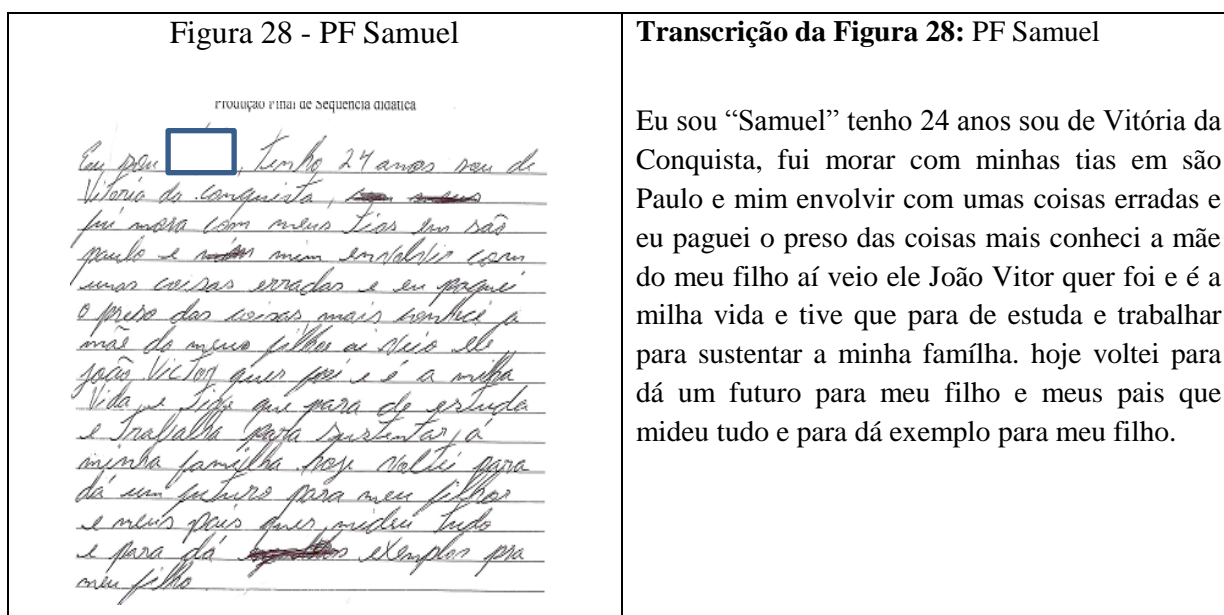 Figura 28 - PF Samuel
Produção Final de Sequencia didatica
Eu sou , tenho 24 anos sou de
Vitoria da conquista,
fui mora com meus tios em são
paulo e mim envolvir com
umas coisas erradas e eu paguei
o preso das coisas mais conheci a
mãe do meu filho ai veio ele
joão Victor quer foi e é a milha
Vida e tive que para de estuda
e Trabalha para sustentar, a
minha familha. hoje voltei para
dá um futuro para meu filho
e meus pais quer mideu tudo
e para dá exemplos pra
meu filho.
Transcrição da Figura 28: PF Samuel
Eu sou “Samuel” tenho 24 anos sou de Vitória da
Conquista, fui morar com minhas tias em são
Paulo e mim envolvir com umas coisas erradas e
eu paguei o preso das coisas mais conheci a mãe
do meu filho aí veio ele João Vitor quer foi e é a
milha vida e tive que para de estuda e trabalhar
para sustentar a minha famílha. hoje voltei para
dá um futuro para meu filho e meus pais que
mideu tudo e para dá exemplo para meu filho.